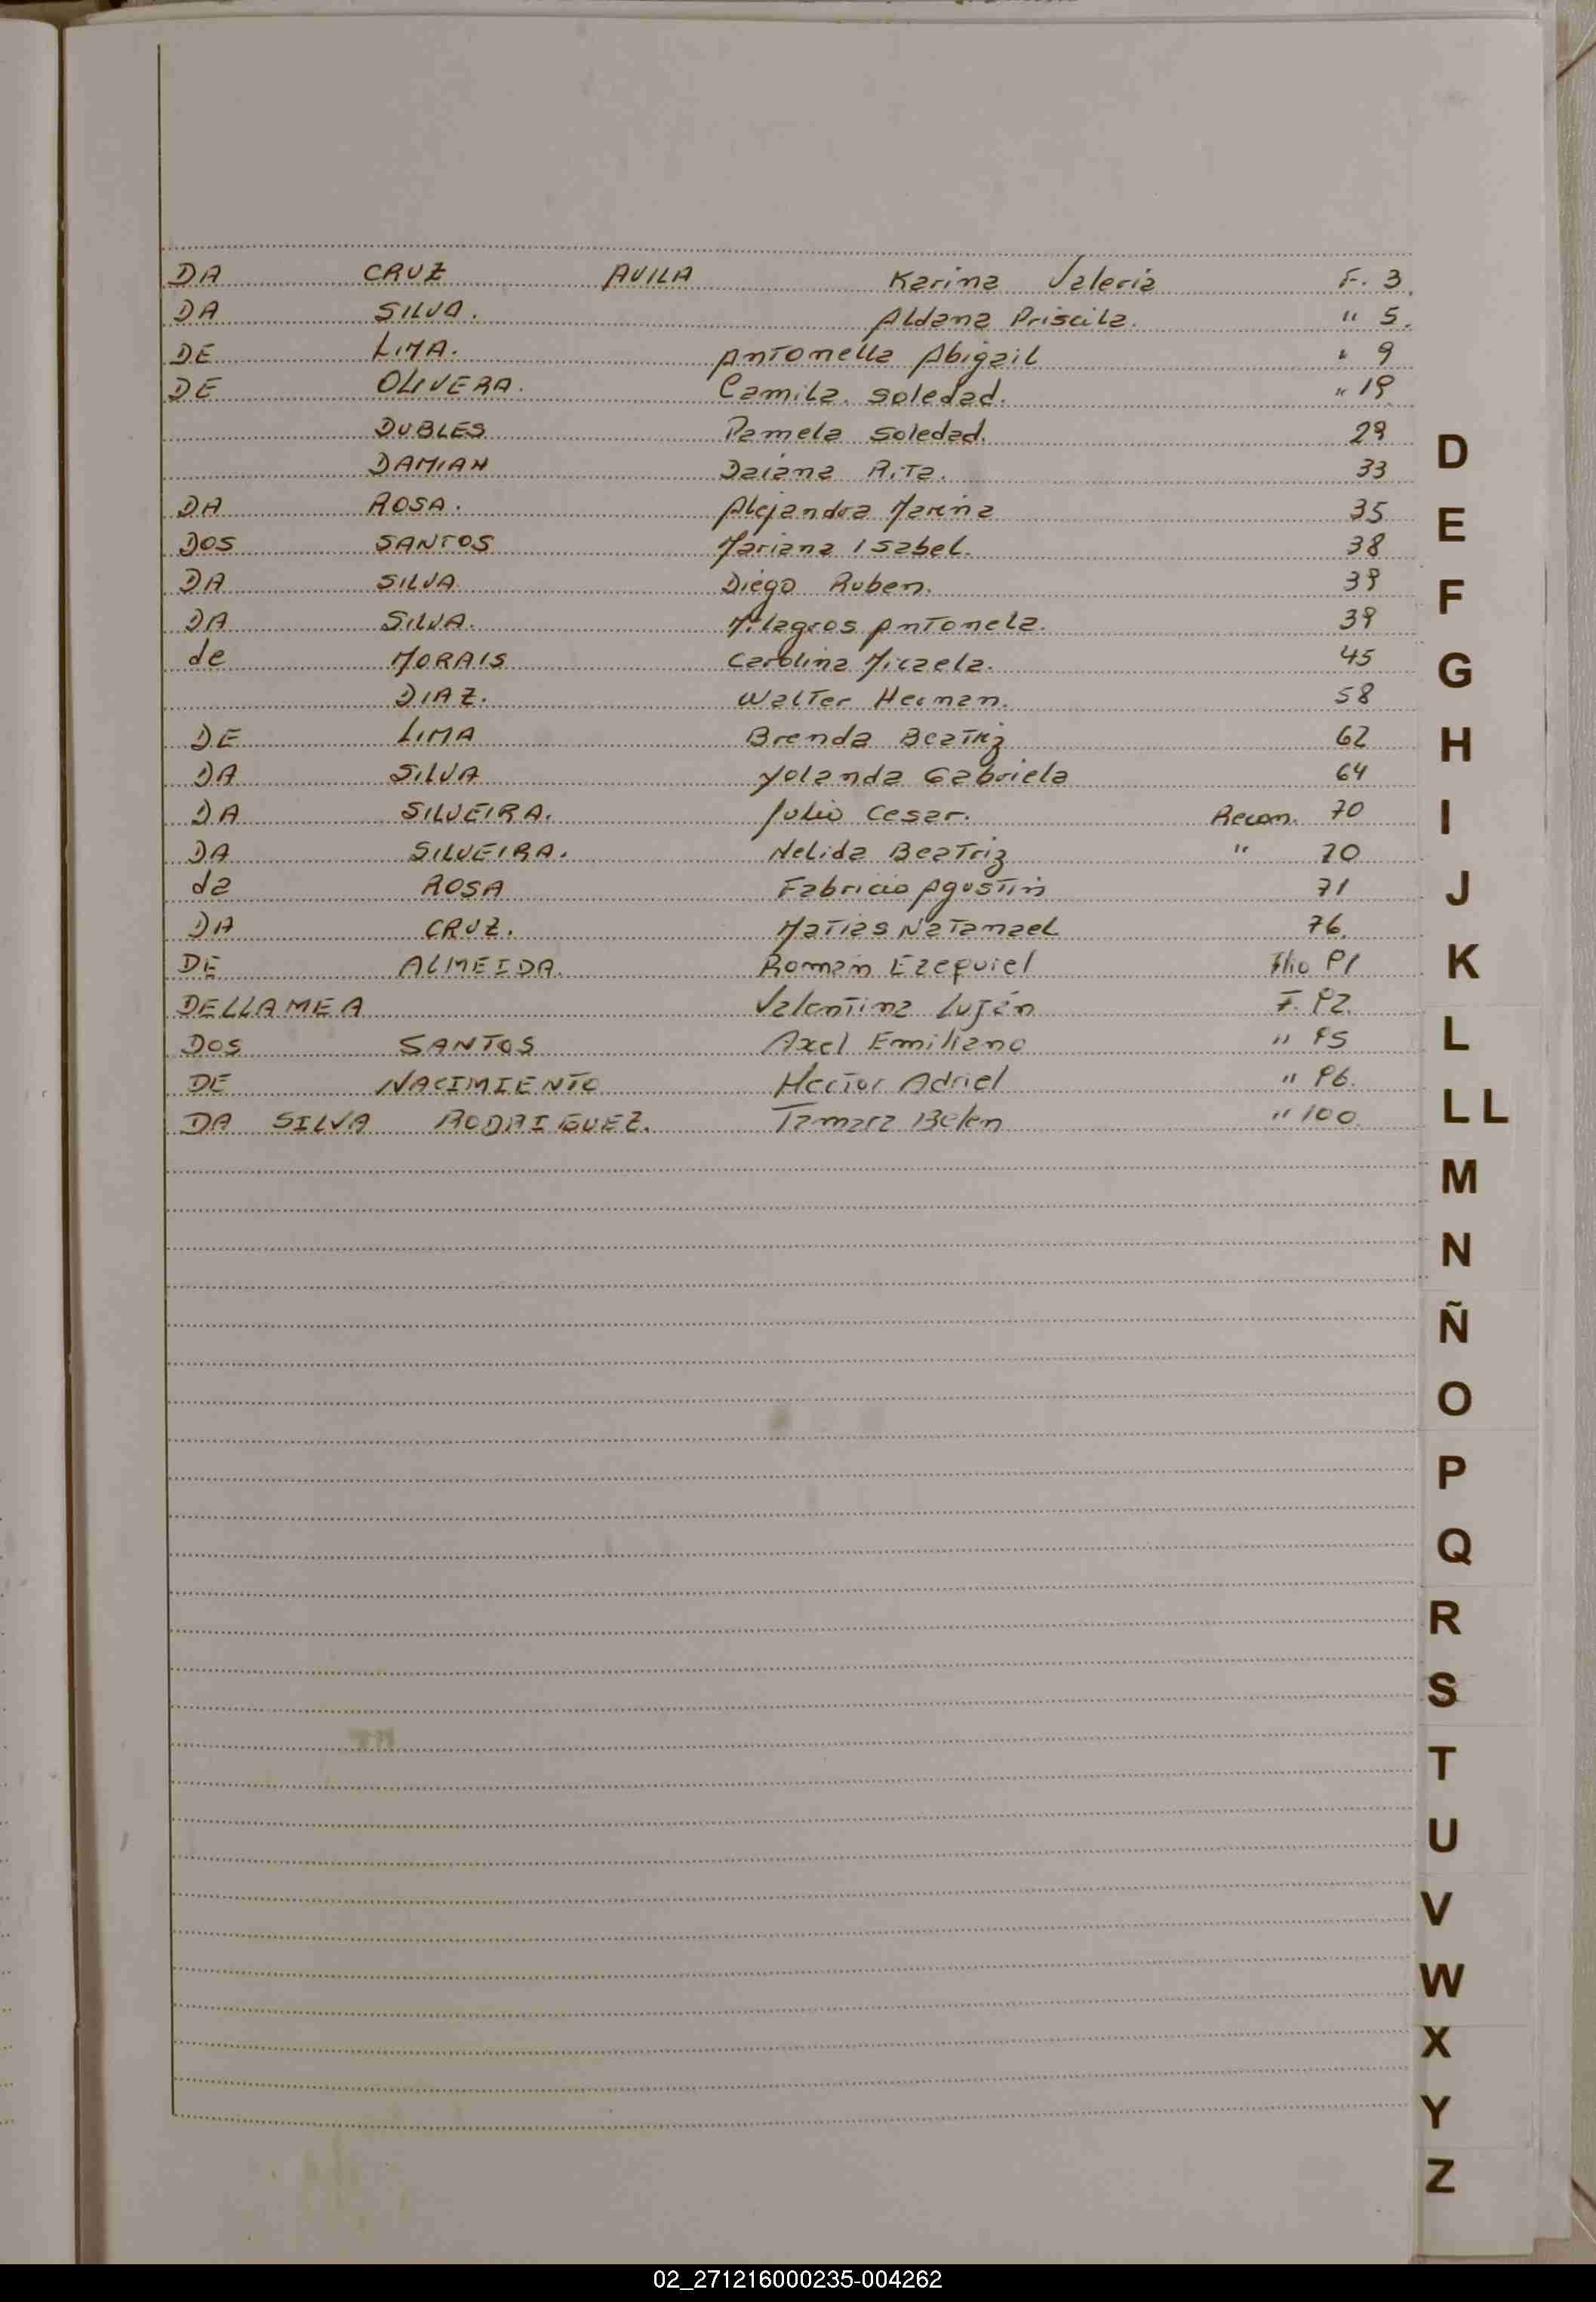 DA CRUZ AVILA Karina Valeria F. 3.
DA SILVA. Aldana Priscila. " 5.
DE LIMA. Antonella Abigail " 9
DE OLIVERA. Camila. Soledad. " 19
DUBLES Pamela Soledad. 29
D
DAMIAN Daiana Rita. 33
DA ROSA. Alejandra Marina 35
E
DOS SANTOS Mariana Isabel. 38
DA SILVA Diego Ruben. 39
F
DA SILVA. Milagros Antonela. 39
de MORAIS Carolina Micaela. 45
G
DIAZ. Walter Hernan. 58
DE LIMA Brenda Beatriz 62
H
DA SILVA Yolanda Gabriela 64
DA SILVEIRA. Julio Cesar. Recon. 70
I
DA SILVEIRA. Nelida Beatriz " 70
da ROSA Fabricio Agustin 71
J
DA CRUZ. Matias Natanael 76.
DE ALMEIDA. Roman Ezequiel Flio 91
K
DELLAMEA Valentina Luján F. 92.
DOS SANTOS Axel Emiliano " 95
L
DE NACIMIENTO Hector Adriel " 96.
DA SILVA RODRIGUEZ. Tamara Belen " 100.
LL
M
N
Ñ
O
P
Q
R
S
T
U
V
W
X
Y
Z
02_271216000235-004262